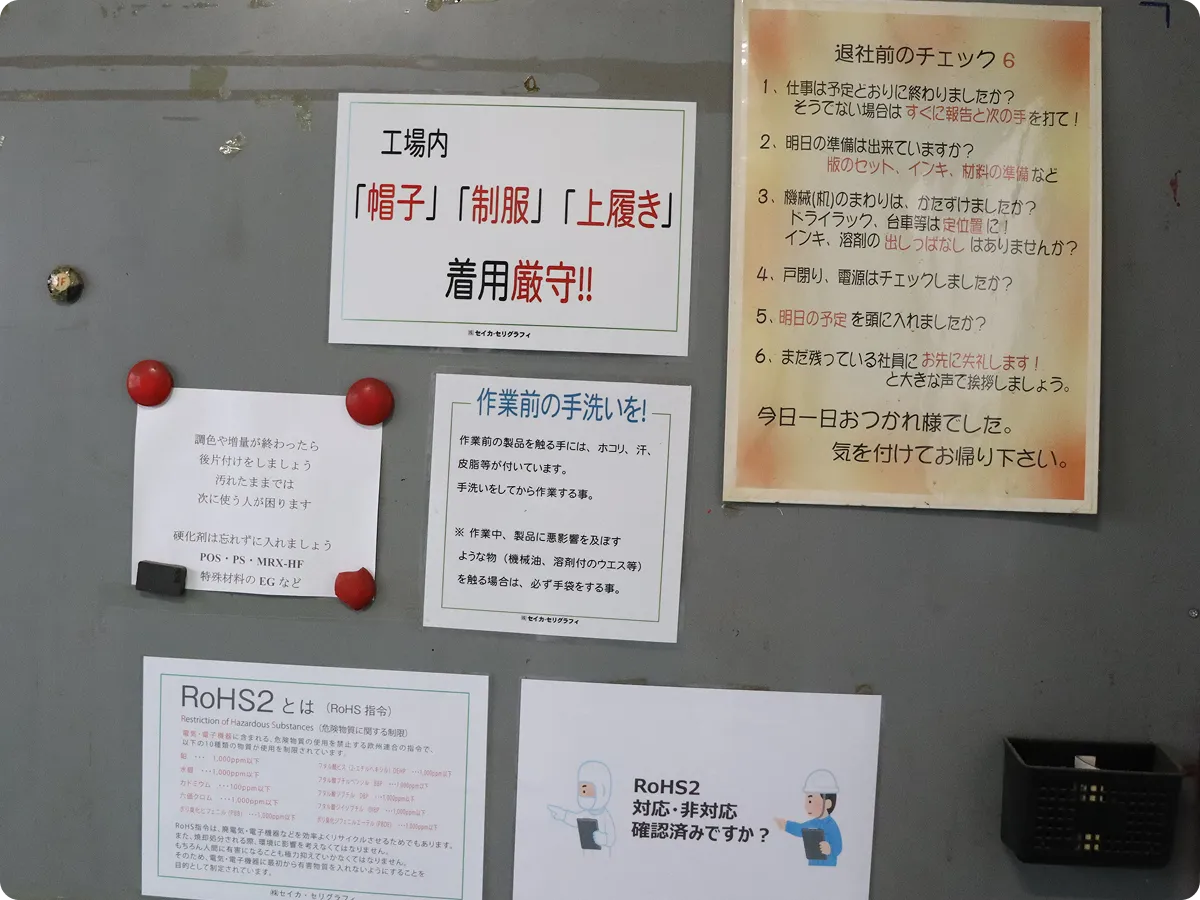 工場内
「帽子」「制服」「上履き」
着用厳守!!
㈱セイカ・セリグラフィ
退社前のチェック 6
1、仕事は予定どおりに終わりましたか?
そうでない場合は すぐに報告と次の手を打て!
2、明日の準備は出来ていますか?
版のセット、インキ、材料の準備など
3、機械(机)のまわりは、かたずけましたか?
ドライラック、台車等は 定位置 に!
インキ、溶剤の 出しっぱなし はありませんか?
4、戸閉り、電源はチェックしましたか?
5、明日の予定 を頭に入れましたか?
6、まだ残っている社員に お先に失礼します!
と大きな声で挨拶しましょう。
今日一日おつかれ様でした。
気を付けてお帰り下さい。
調色や増量が終わったら
後片付けをしましょう
汚れたままでは
次に使う人が困ります
硬化剤は忘れずに入れましょう
POS・PS・MRX-HF
特殊材料の EG など
作業前の手洗いを!
作業前の製品を触る手には、ホコリ、汗、
皮脂等が付いています。
手洗いをしてから作業する事。
※ 作業中、製品に悪影響を及ぼす
ような物（機械油、溶剤付のウエス等）
を触る場合は、必ず手袋をする事。
㈱セイカ・セリグラフィ
RoHS2 とは （RoHS 指令）
Restriction of Hazardous Substances（危険物質に関する制限）
電気・電子機器に含まれる、危険物質の使用を禁止する欧州連合の指令で、
以下の10種類の物質が使用を制限されています。
鉛 ・・・ 1,000ppm以下
水銀 ・・・1,000ppm以下
カドミウム ・・・100ppm以下
六価クロム ・・・1,000ppm以下
ポリ臭化ビフェニル（PBB） ・・・1,000ppm以下
フタル酸ビス（2-エチルヘキシル）DEHP ・・・1,000ppm以下
フタル酸ブチルベンジル BBP ・・・1,000ppm以下
フタル酸ジブチル DBP ・・・1,000ppm以下
フタル酸ジイソブチル DIBP ・・・1,000ppm以下
ポリ臭化ジフェニルエーテル（PBDE） ・・・1,000ppm以下
RoHS指令は、廃電気・電子機器などを効率よくリサイクルさせるためでもあります。
また、焼却処分される際、環境に影響を考えなくてはなりません。
もちろん人間に有害になることも極力抑えていかなくてはなりません。
そのため、電気・電子機器に最初から有害物質を入れないようにすることを
目的として制定されています。
㈱セイカ・セリグラフィ
RoHS2
対応・非対応
確認済みですか？